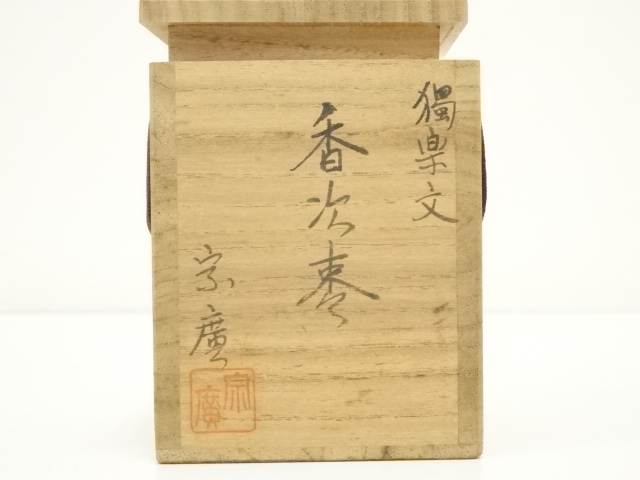 獨楽文
香次棗
宗廣
宗廣